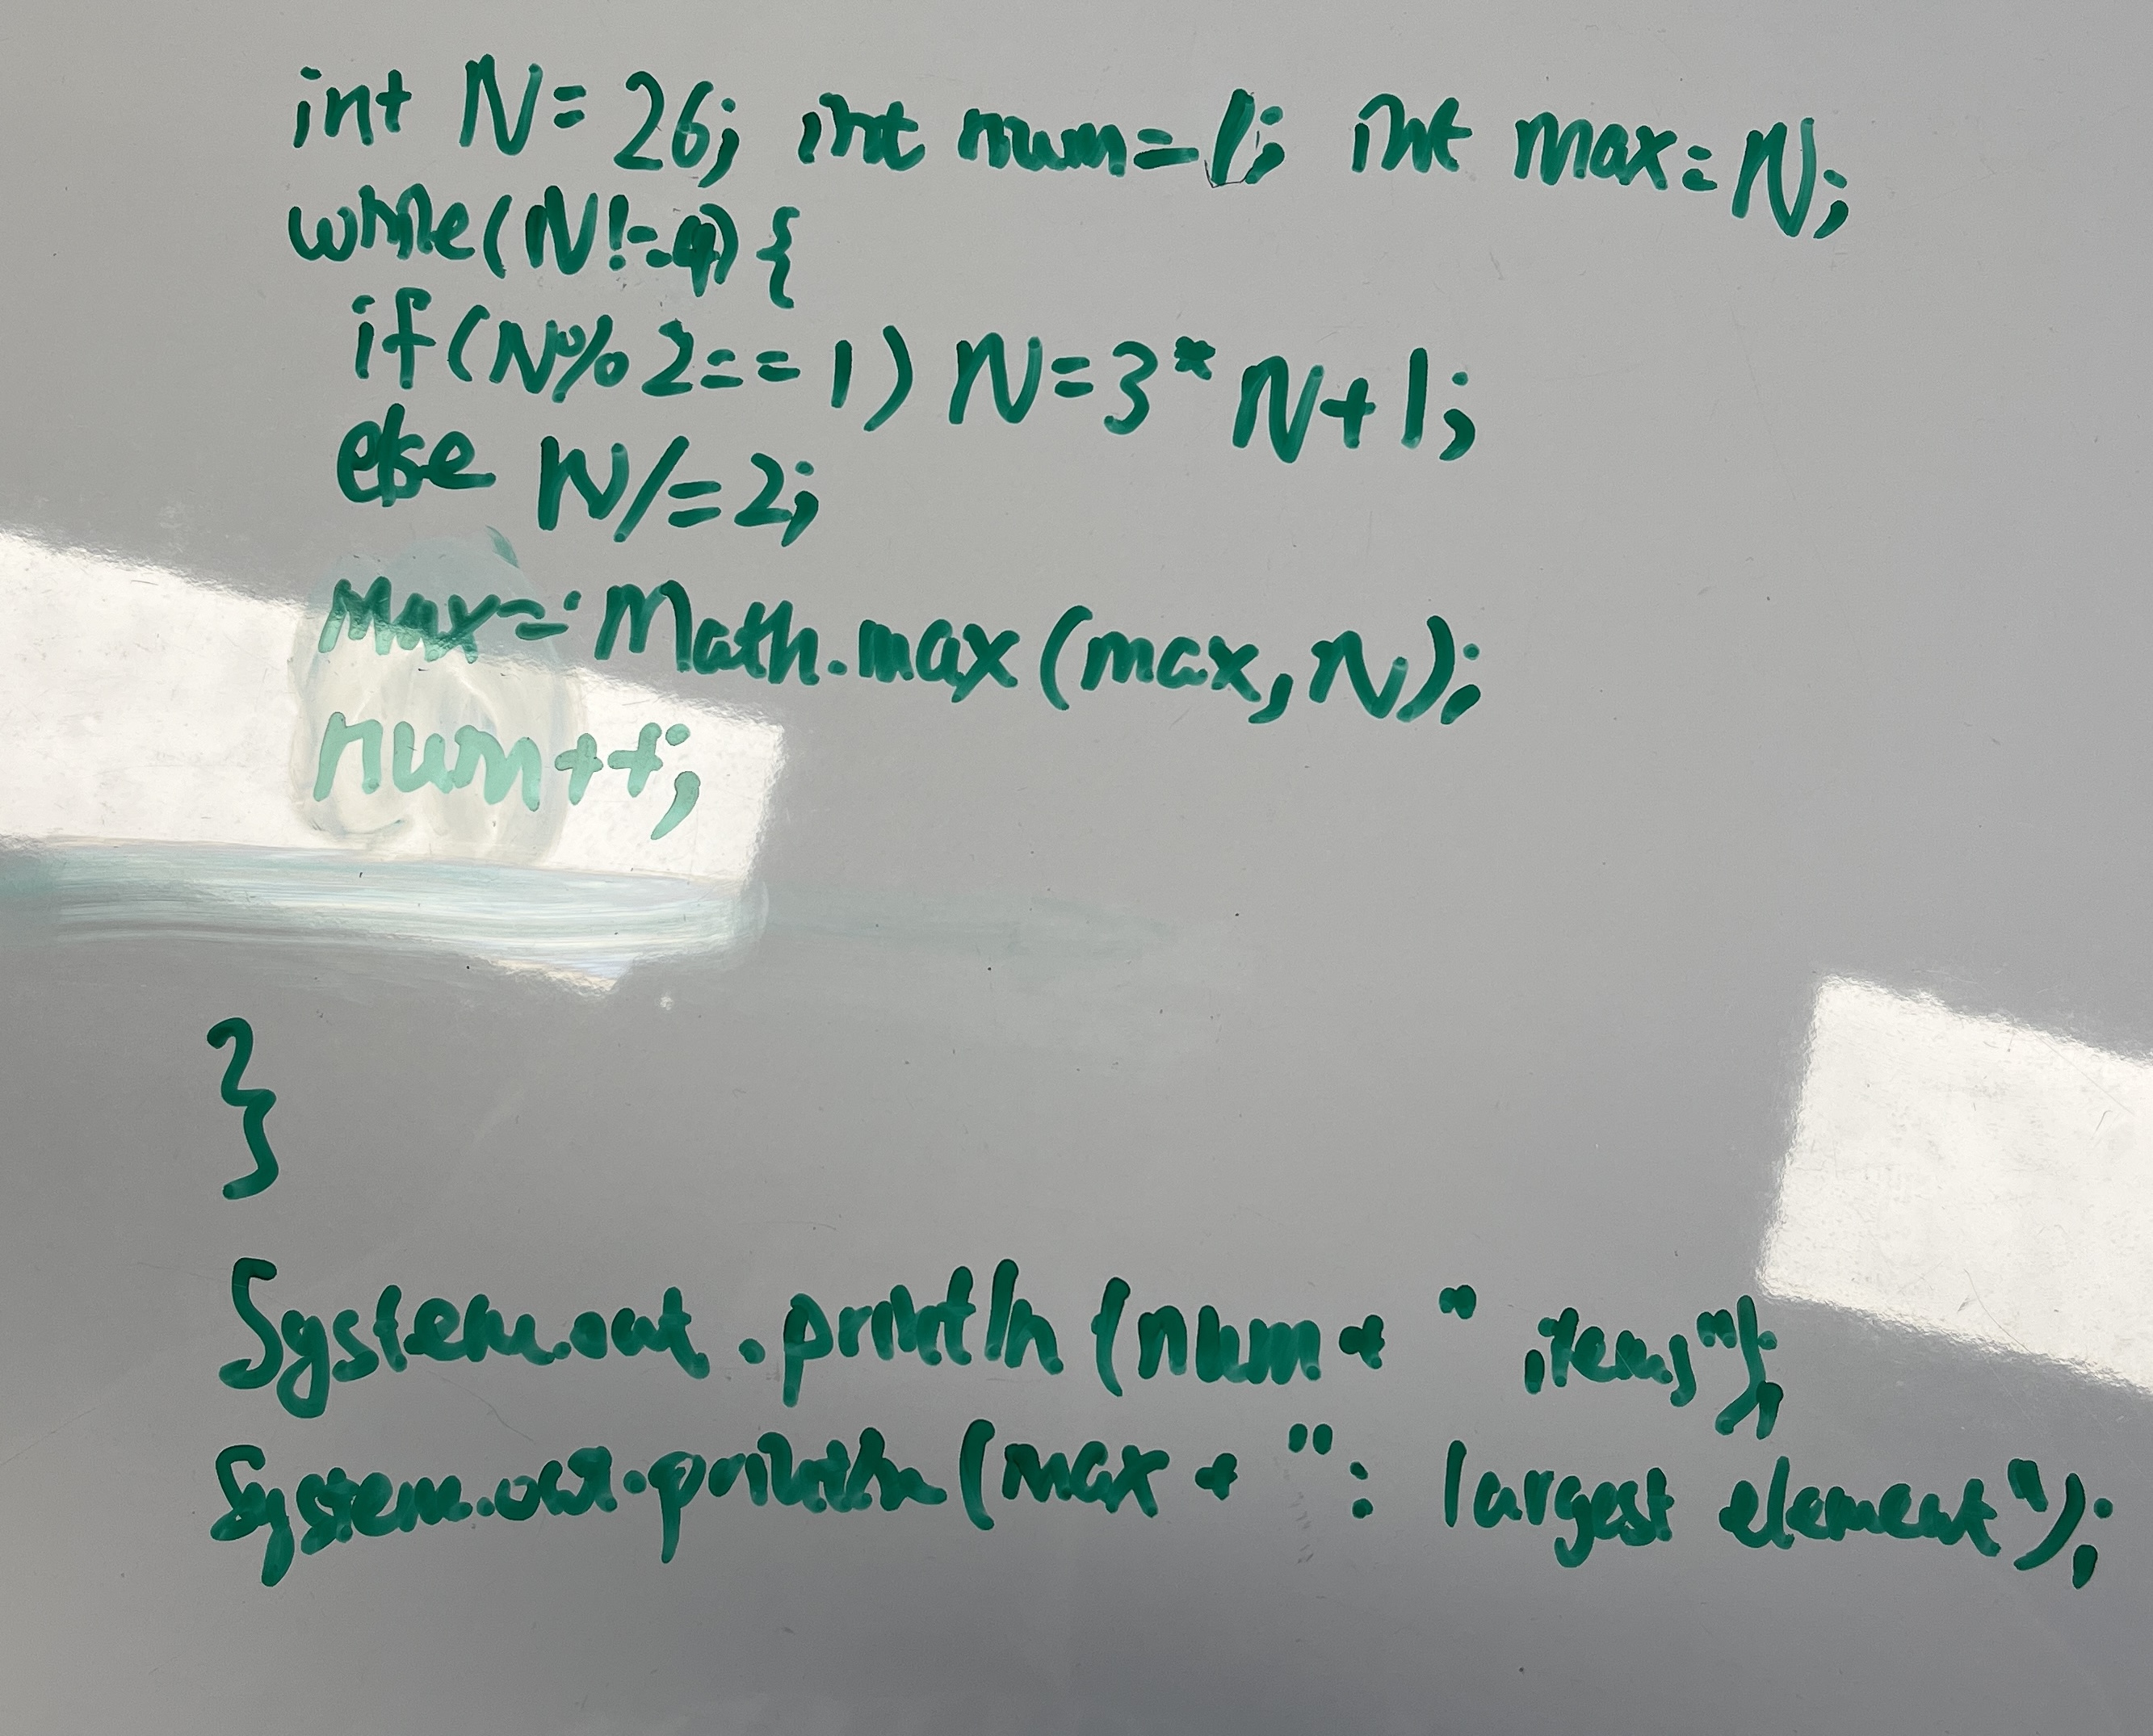 int N= 26; int num=1; int max=N;
while(N!=4) {
if(N%2==1) N=3*N+1;
else N/=2;
max= Math.max(max,N);
num++;
}
System.out.println(num+ " items");
System.out.println(max + ": largest element");